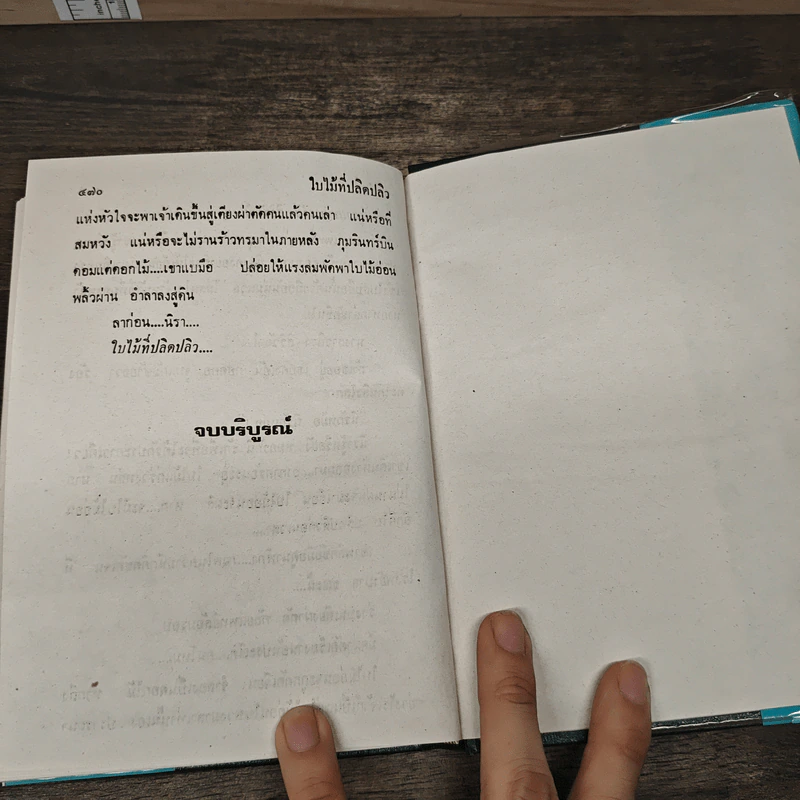 ๔๗๐
ใบไม้ที่ปลิดปลิว
แห่งหัวใจจะพาเจ้าเดินขึ้นสู่เตียงผ่าตัดคนแล้วคนเล่า แน่หรือที่
สมหวัง แน่หรือจะไม่รานร้าวทรมาในภายหลัง ภุมรินทร์บิน
ตอมแต่ดอกไม้....เขาแบมือ ปล่อยให้แรงลมพัดพาใบไม้อ่อน
พลิ้วผ่าน อำลาลงสู่ดิน
ลาก่อน....นิรา....
ใบไม้ที่ปลิดปลิว....
จบบริบูรณ์
inches